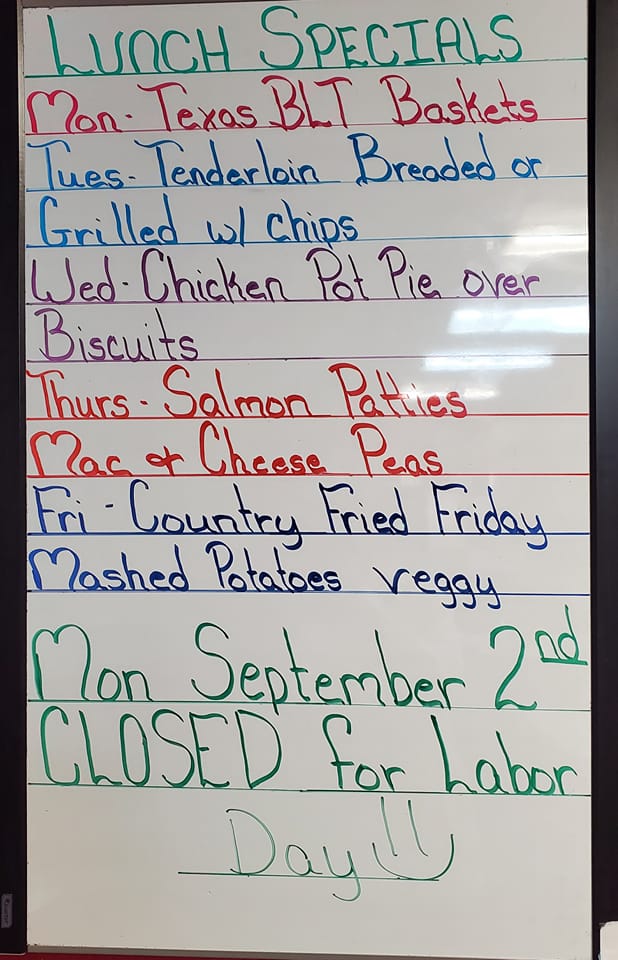 LUNCH SPECIALS
Mon- Texas BLT Baskets
Tues- Tenderloin Breaded or
Grilled w/ chips
Wed- Chicken Pot Pie over
Biscuits
Thurs- Salmon Patties
Mac & Cheese Peas
Fri- Country Fried Friday
Mashed Potatoes veggy
Mon September 2nd
CLOSED for Labor
Day